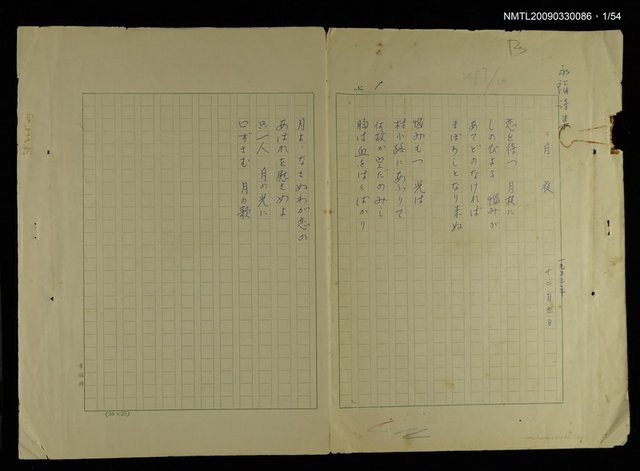 NMTL20090330086，1/54
永福詩集
月夜
一九五三年
十二月五日
恋を待つ 月夜に
しのびよる 悩みが
あてどのなければ
まぼろしとなり来ぬ
悩みもつ 光は
村小路にあふりて
何故か空をのみし
胸は血をはくばかり
月よ、なさぬわが恋の
あはれを慰さめよ
只一人 月の光に
口ずさむ 月の歌
(24×25)